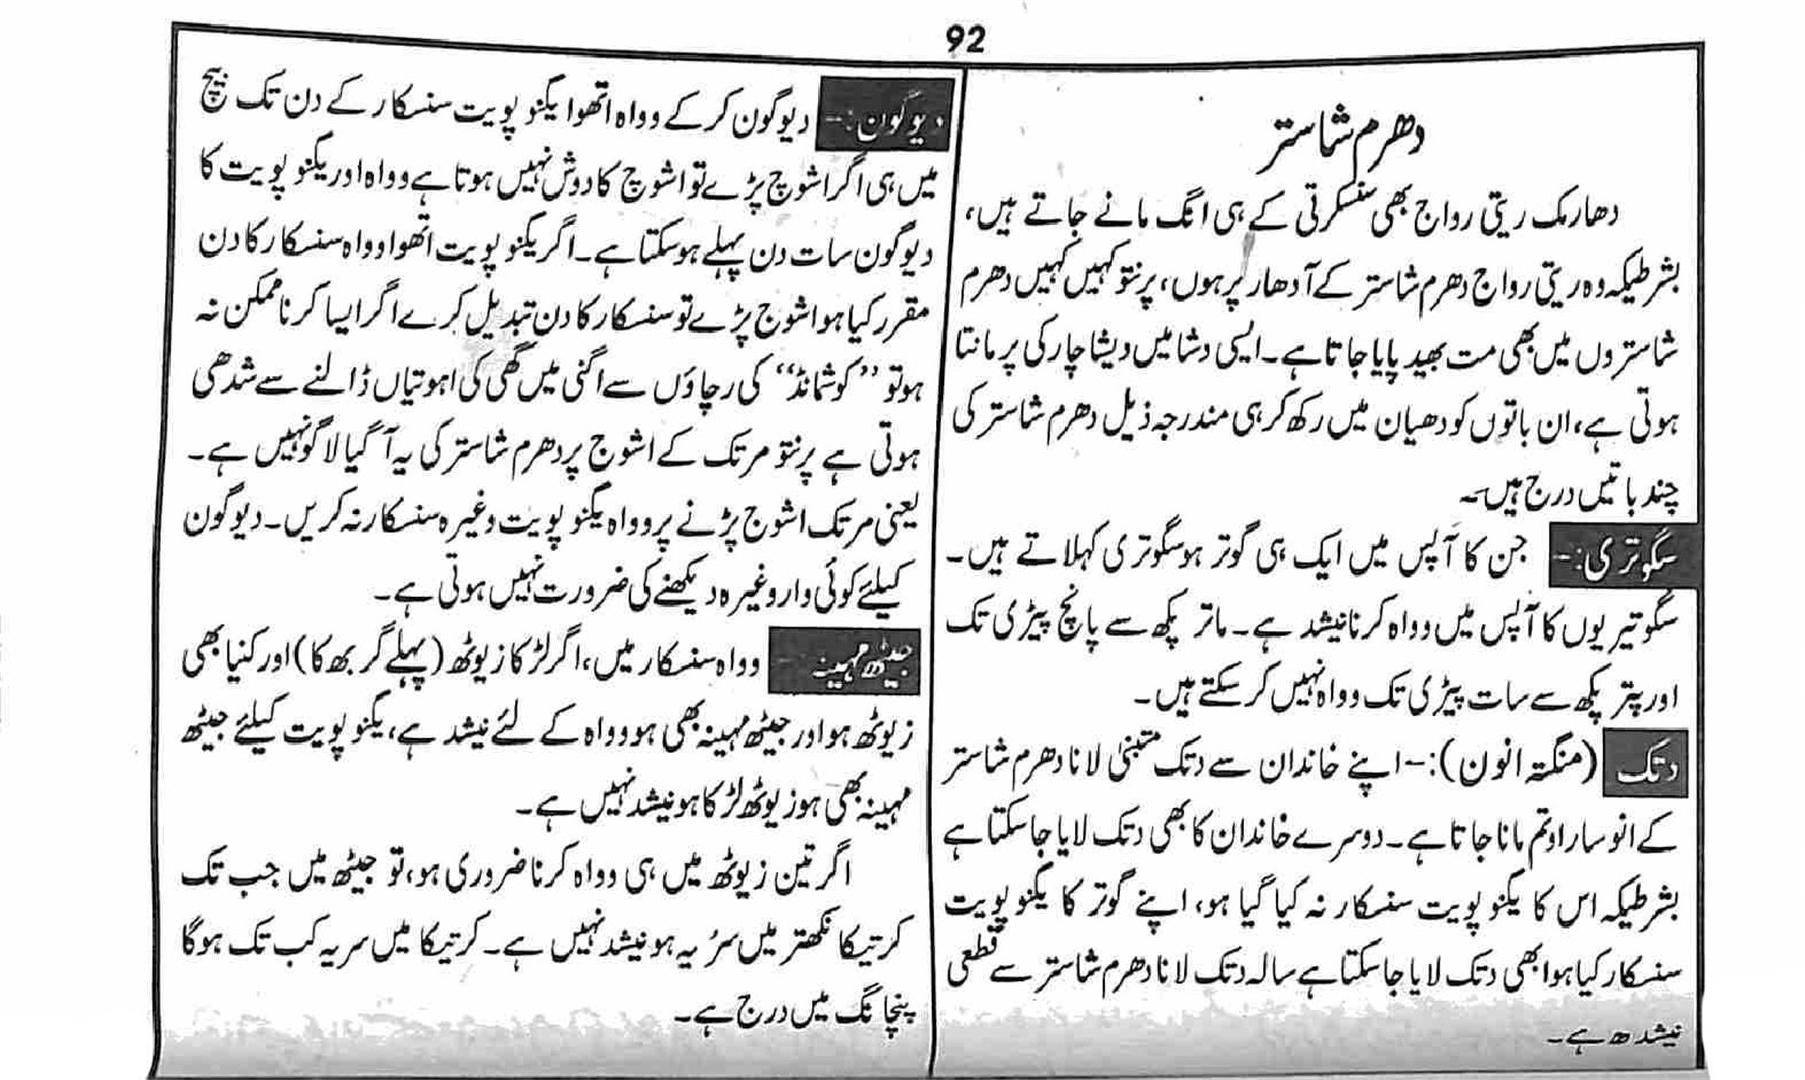 92
دھرم شاستر
دھارمک ریتی رواج بھی سنسکرتی کے ہی انگ مانے جاتے ہیں،
بشرطیکہ وہ ریتی رواج دھرم شاستر کے آدھار پر ہوں، پرنتو کہیں کہیں دھرم
شاستروں میں بھی مت بھید پایا جاتا ہے۔ ایسی دشا میں دیشاچار کی پر مانتا
ہوتی ہے، ان باتوں کو دھیان میں رکھ کر ہی مندرجہ ذیل دھرم شاستر کی
چند باتیں درج ہیں۔
سگوتری:- جن کا آپس میں ایک ہی گوتر ہو سگوتری کہلاتے ہیں۔
سگوتیریوں کا آپس میں وواہ کرنا نیشد ہے۔ ماتر پکھ سے پانچ پیڑی تک
اور پتر پکھ سے سات پیڑی تک وواہ نہیں کر سکتے ہیں۔
دتک (منگتہ انون):- اپنے خاندان سے دتک متبنیٰ لانا دھرم شاستر
کے انوسار اوتم مانا جاتا ہے۔ دوسرے خاندان کا بھی دتک لایا جا سکتا ہے
بشرطیکہ اس کا یگنو پویت سنسکار نہ کیا گیا ہو، اپنے گوتر کا یگنو پویت
سنسکار کیا ہوا بھی دتک لایا جا سکتا ہے سالہ دتک لانا دھرم شاستر سے قطعی
نیشدھ ہے۔
دیوگون:- دیوگون کر کے وواہ اتھوا یگنو پویت سنسکار کے دن تک بیچ
میں ہی اگر اشوچ پڑے تو اشوچ کا دوش نہیں ہوتا ہے وواہ اور یگنو پویت کا
دیوگون سات دن پہلے ہو سکتا ہے۔ اگر یگنو پویت اتھوا وواہ سنسکار کا دن
مقرر کیا ہو اشوچ پڑے تو سنسکار کا دن تبدیل کرے اگر ایسا کرنا ممکن نہ
ہو تو ”کوشمانڈ“ کی رچاؤں سے اگنی میں گھی کی اہوتیاں ڈالنے سے شدھی
ہوتی ہے پرنتو مرتک کے اشوچ پر دھرم شاستر کی یہ آگیا لاگو نہیں ہے۔
یعنی مرتک اشوچ پڑنے پر وواہ یگنو پویت وغیرہ سنسکار نہ کریں۔ دیوگون
کیلئے کوئی وار وغیرہ دیکھنے کی ضرورت نہیں ہوتی ہے۔
جیٹھ مہینہ وواہ سنسکار میں، اگر لڑکا زیوٹھ (پہلے گربھ کا) اور کنیا بھی
زیوٹھ ہو اور جیٹھ مہینہ بھی ہو وواہ کے لئے نیشد ہے، یگنو پویت کیلئے جیٹھ
مہینہ بھی ہو زیوٹھ لڑکا ہو نیشد نہیں ہے۔
اگر تین زیوٹھ میں ہی وواہ کرنا ضروری ہو، تو جیٹھ میں جب تک
کرتیکا نکھتر میں سرُیہ ہو نیشد نہیں ہے۔ کرتیکا میں سریہ کب تک ہوگا
پنچانگ میں درج ہے۔